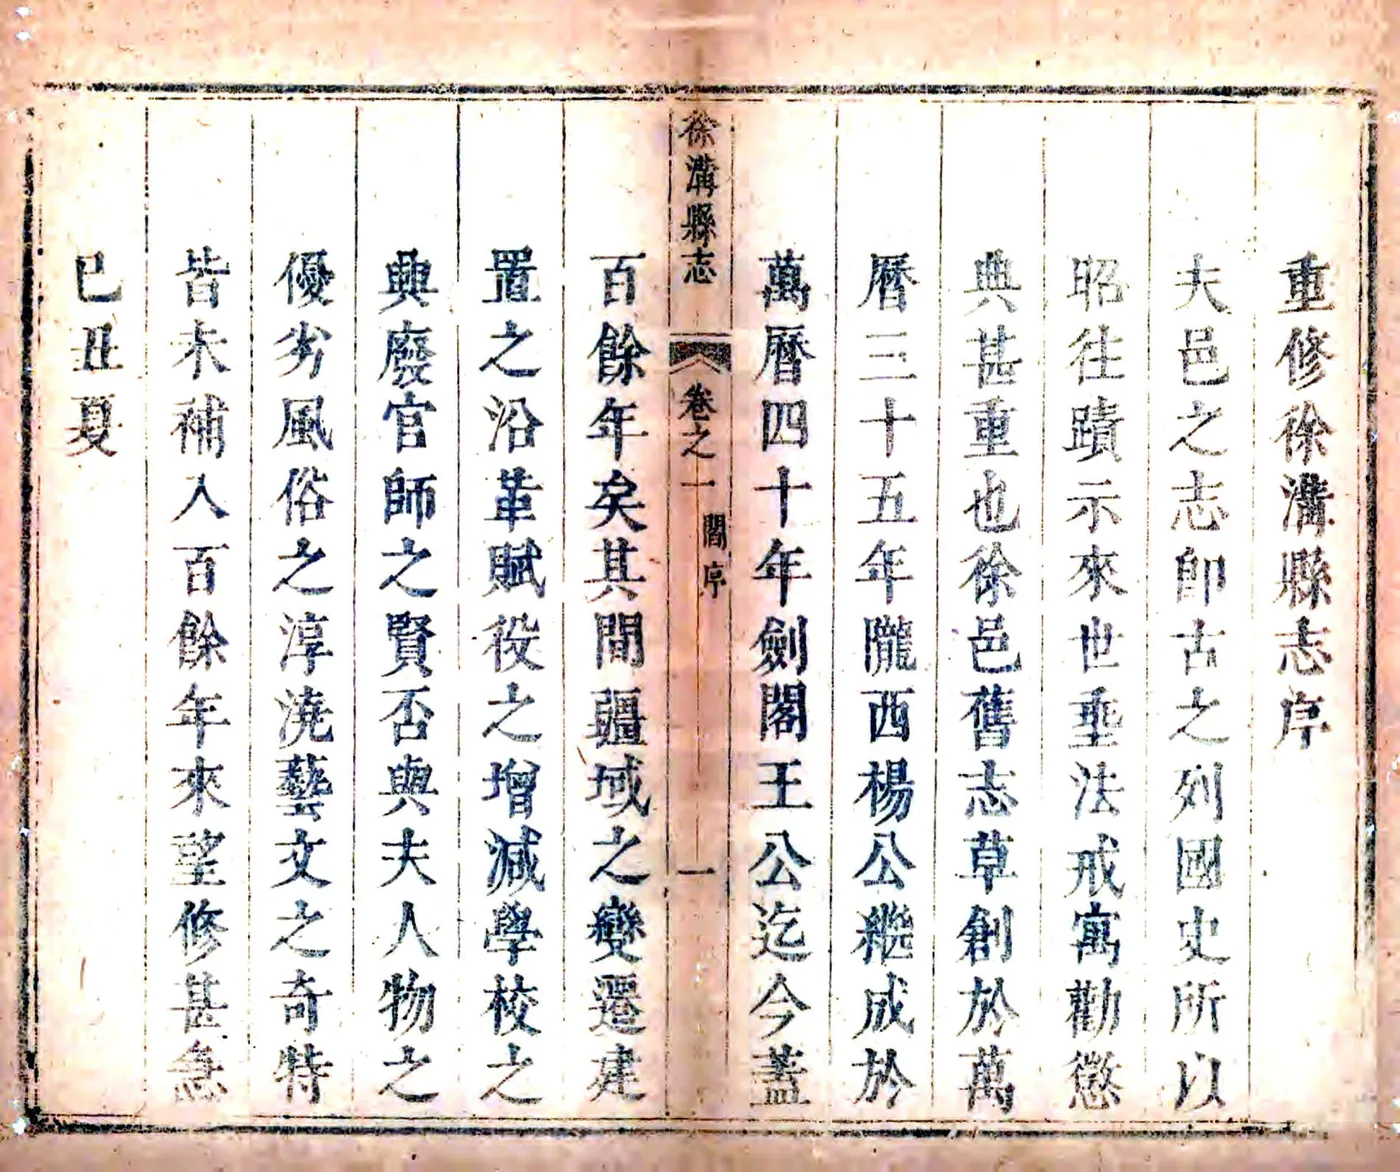 重修徐溝縣志序
夫邑之志即古之列國史所以
昭往蹟示來世垂法戒寓勸懲
典甚重也徐邑舊志草創於萬
曆三十五年隴西楊公繼成於
萬曆四十年劍閣王公迄今蓋
徐溝縣志
卷之一
閻序
一
百餘年矣其間疆域之變遷建
置之沿革賦役之增減學校之
興廢官師之賢否與夫人物之
優劣風俗之淳澆藝文之奇特
皆未補入百餘年來望修甚急
已丑夏